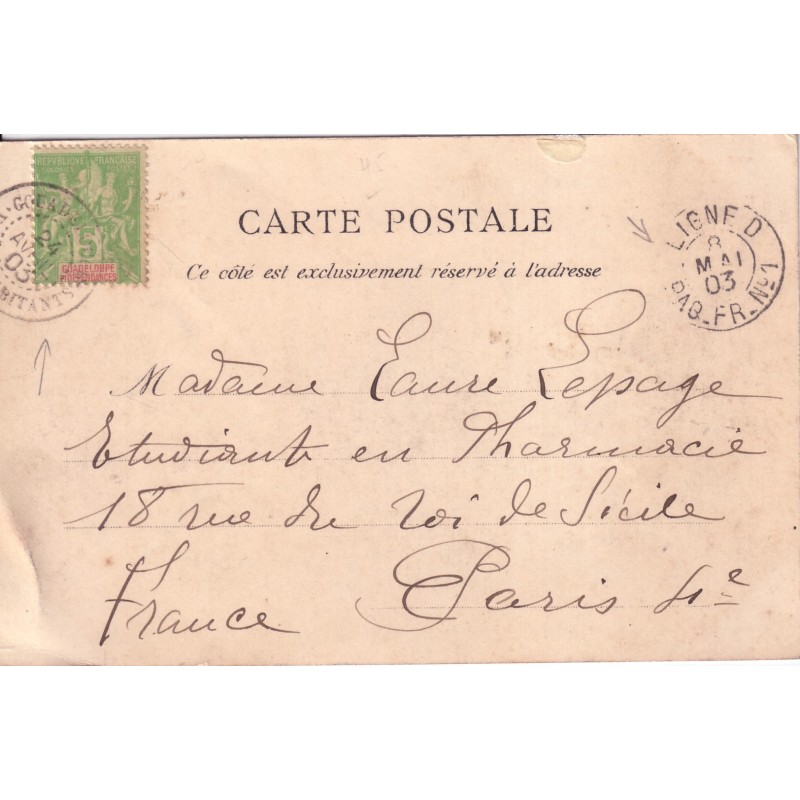 REPUBLIQUE FRANÇAISE
5
GUADELOUPE
ET DEPENDANCES
24
03
CARTE POSTALE
Ce côté est exclusivement réservé à l'adresse
LIGNE D
8
MAI
03
PAQ. FR. No 1
Madame Laure Lepage
Etudiante en Pharmacie
18 rue du Roi de Sicile
France Paris 4e